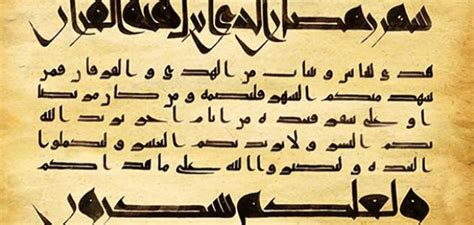 شهر رمضان الذي انزل فيه القران
هدى للناس و بينات من الهدى و الفرقان فمن
شهد منكم الشهر فليصمه و من كان مريضا
او على سفر فعدة من ايام اخر يريد الله
بكم اليسر و لا يريد بكم العسر و لتكملوا
العدة و لتكبروا الله على ما هداكم
و لعلكم تشكرون